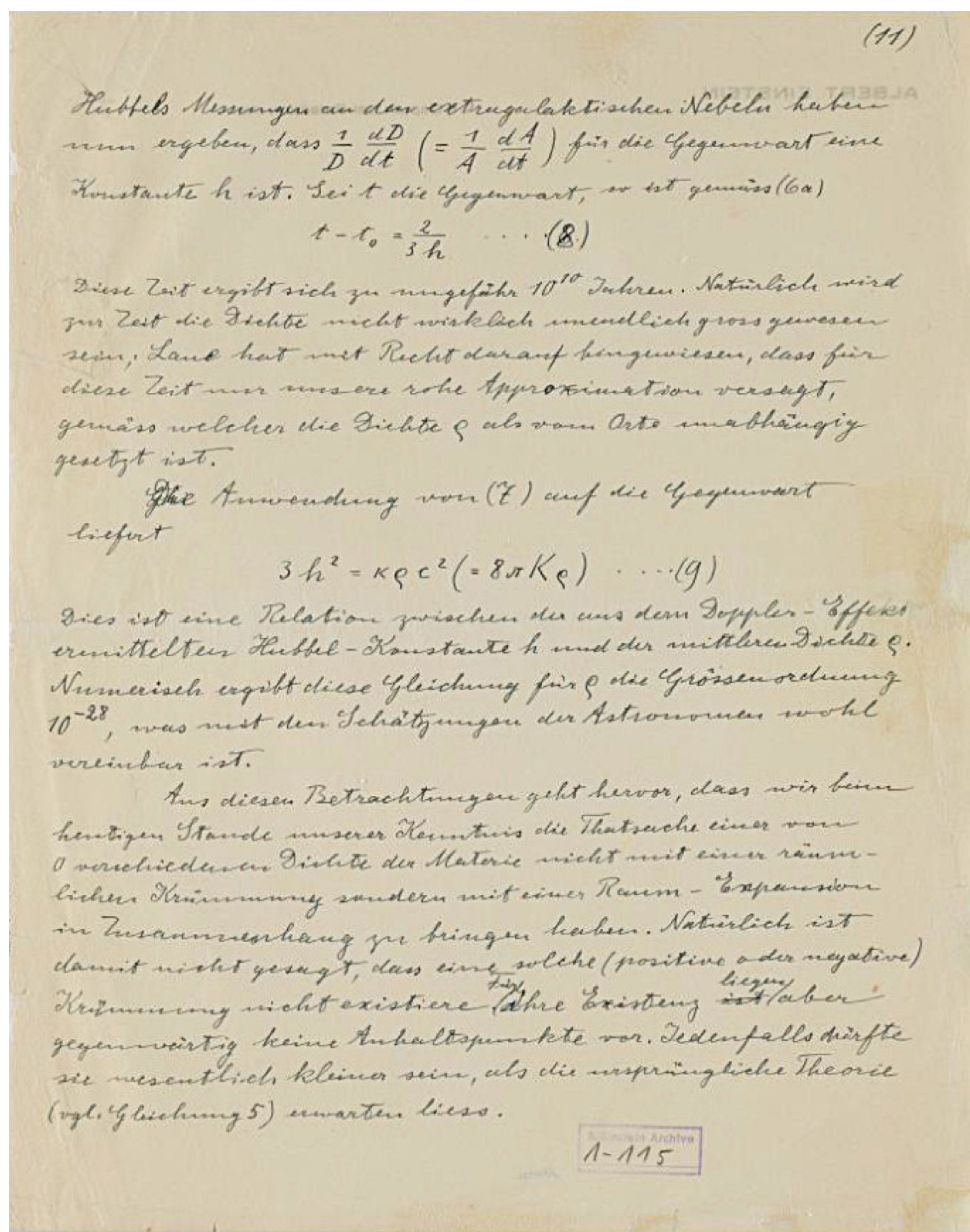 (11)
ALBERT EINSTEIN
Hubbels Messungen an den extragalaktischen Nebeln haben
nun ergeben, dass 1/D dD/dt (= 1/A dA/dt) für die Gegenwart eine
Konstante h ist. Sei t die Gegenwart, so ist gemäss (6a)
t - t₀ = 2/3h · · · · (8.)
Diese Zeit ergibt sich zu ungefähr 10¹⁰ Jahren. Natürlich wird
zur Zeit die Dichte nicht wirklich unendlich gross gewesen
sein; Laue hat mit Recht darauf hingewiesen, dass für
diese Zeit nur unsere rohe Approximation versagt,
gemäss welcher die Dichte ρ als vom Orte unabhängig
gesetzt ist.
Die Anwendung von (7) auf die Gegenwart
liefert
3 h² = κρc² (= 8πKρ) · · · · · (9)
Dies ist eine Relation zwischen der aus dem Doppler-Effekt
ermittelten Hubbel-Konstante h und der mittleren Dichte ρ.
Numerisch ergibt diese Gleichung für ρ die Grössenordnung
10⁻²⁸, was mit den Schätzungen der Astronomen wohl
vereinbar ist.
Aus diesen Betrachtungen geht hervor, dass wir beim
heutigen Stande unserer Kenntnis die Thatsache einer von
0 verschiedenen Dichte der Materie nicht mit einer räum-
lichen Krümmung sondern mit einer Raum-Expansion
in Zusammenhang zu bringen haben. Natürlich ist
damit nicht gesagt, dass eine solche (positive oder negative)
Krümmung nicht existiere. Für ihre Existenz liegen aber
gegenwärtig keine Anhaltspunkte vor. Jedenfalls dürfte
sie wesentlich kleiner sein, als die ursprüngliche Theorie
(vgl. Gleichung 5) erwarten liess.
Einstein Archive
1-115